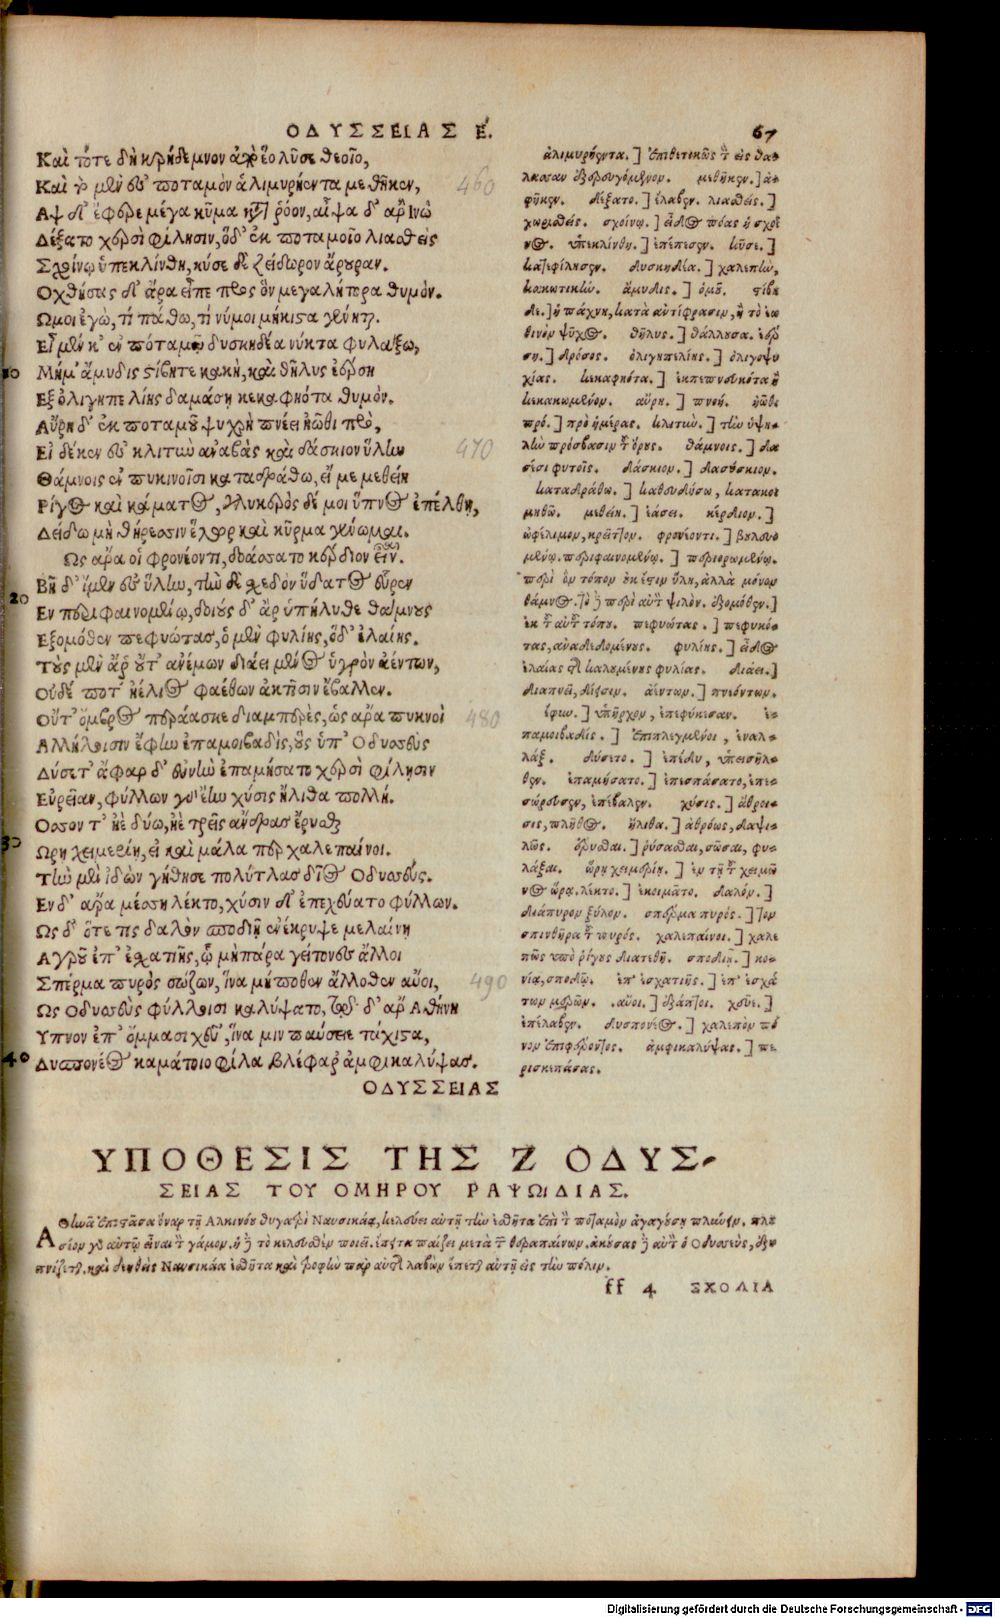 ΟΔΥΣΣΕΙΑΣ Ε.
67
Καὶ τότε δὴ κρήδεμνον ἀπὸ ἕο λῦσε θεοῖο,
Καὶ τὸ μὲν ἐς ποταμὸν ἁλιμυρήεντα μεθῆκεν,
Αψ δ' ἔφερε μέγα κῦμα κατὰ ῥόον, αἶψα δ' ἄρ' Ἰνὼ
Δέξατο χερσὶ φίλησιν, ὁ δ' ἐκ ποταμοῖο λιασθεὶς
Σχοίνῳ ὑπεκλίνθη, κύσε δὲ ζείδωρον ἄρουραν.
Οχθήσας δ' ἄρα εἶπε πρὸς ὃν μεγαλήτορα θυμόν.
Ωμοι ἐγὼ, τί πάθω, τί νύ μοι μήκιστα γένηται.
Εἰ μέν κ' ἐν ποταμῷ δυσκηδέα νύκτα φυλάξω,
Μή μ' ἄμυδις στίβητε κακὴ, καὶ θῆλυς ἐέρση
Εξ ὀλιγηπελίης δαμάσῃ κεκαφηότα θυμόν.
Αὔρη δ' ἐκ ποταμοῦ ψυχρὴ πνέει ἠῶθι πρὸ,
Εἰ δέ κεν ἐς κλιτὺν ἀναβὰς καὶ δάσκιον ὕλην
Θάμνοις ἐν πυκινοῖσι καταδράθω, εἴ με μεθείη
Ρίγος καὶ κάματος, γλυκερὸς δέ μοι ὕπνος ἐπέλθῃ,
Δείδω μὴ θήρεσσιν ἕλωρ καὶ κῦρμα γένωμαι.
Ως ἄρα οἱ φρονέοντι, δοάσσατο κέρδιον εἶναι.
Βῆ δ' ἴμεν ἐς ὕλην, τὴν δὲ σχεδὸν ὕδατος εὗρεν
Εν περιφαινομένῳ, δοιοὺς δ' ἄρ' ὑπήλυθε θάμνους
Εξομόθεν πεφυῶτας, ὁ μὲν φυλίης, ὁ δ' ἐλαίης.
Τοὺς μὲν ἄρ' οὔτ' ἀνέμων διάει μένος ὑγρὸν ἀέντων,
Οὐδέ ποτ' ἠέλιος φαέθων ἀκτῖσιν ἔβαλλεν.
Οὔτ' ὄμβρος περάασκε διαμπερὲς, ὣς ἄρα πυκνοὶ
Αλλήλοισιν ἔφυν ἐπαμοιβαδὶς, οὓς ὑπ' Οδυσσεὺς
Δύσετ' ἄφαρ δ' εὐνὴν ἐπαμήσατο χερσὶ φίλησιν
Εὐρεῖαν, φύλλων γὰρ ἔην χύσις ἤλιθα πολλή.
Οσσον τ' ἠὲ δύω, ἠὲ τρεῖς ἄνδρας ἔρυσθαι
Ωρῃ χειμερίῃ, εἰ καὶ μάλα περ χαλεπαίνοι.
Τὴν μὲν ἰδὼν γήθησε πολύτλας δῖος Οδυσσεύς.
Εν δ' ἄρα μέσσῃ λέκτο, χύσιν δ' ἐπεχεύατο φύλλων.
Ως δ' ὅτε τις δαλὸν σποδιῇ ἐνέκρυψε μελαίνῃ
Αγροῦ ἐπ' ἐσχατιῆς, ᾧ μὴ πάρα γείτονες ἄλλοι
Σπέρμα πυρὸς σώζων, ἵνα μή ποθεν ἄλλοθεν αὔοι,
Ως Οδυσσεὺς φύλλοισι καλύψατο, τῷ δ' ἄρ' Αθήνη
Υπνον ἐπ' ὄμμασι χεῦ', ἵνα μιν παύσειε τάχιστα,
Δυσπονέος καμάτοιο φίλα βλέφαρ' ἀμφικαλύψας.
ΟΔΥΣΣΕΙΑΣ
10
20
30
40
460
470
480
490
ἁλιμυρήεντα.]
μεθῆκεν.]
φῆκεν. δέξατο.] ἔλαβεν. λιασθείς.]
χωρισθείς. σχοίνῳ.]
ὑπεκλίνθη.] ἐπέπεσεν. κῦσε.]
κατεφίλησεν. δυσκηδέα.] χαλεπὴν,
κακωτικήν. ἄμυδις.] ὁμοῦ.
θινὸν ψῦχος. θῆλυς.] θάλλουσα.
ση.] δρόσος. ὀλιγηπελίης.] ὀλιγοψυ
χίας. κεκαφηότα.] ἐκπεπνευκότα ἢ
κεκακωμένον. αὔρη.] πνοή. ἠῶθι
πρό.] πρὸ ἡμέρας. κλιτὺν.] τὴν ὑψη-
λὴν πρόσβασιν τοῦ ὄρους. θάμνοις.] δα
σέσι φυτοῖς. δάσκιον.] δασύσκιον.
καταδράθω.] καθευδήσω, κατακοι
μηθῶ. μεθείη.] ἐάσει. κέρδιον.]
ὠφέλιμον, κρεῖττον. φρονέοντι.] βουλευο
μένῳ. περιφαινομένῳ.] περιορωμένῳ.
περὶ ὃν τόπον οὐκ ἔστιν ὕλη, ἀλλὰ μόνον
ἐξομόθεν.]
ἐκ τοῦ αὐτοῦ τόπου. πεφυῶτας.] πεφυκό-
τας, ἀναδεδομένους. φυλίης.] εἶδος
ἐλαίας τῆς καλουμένης φυλίας. διάει.]
διαπνεῖ, ἀέντων.] πνεόντων.
ἔφυν.] ὑπῆρχον, ἐπεφύκεισαν. ἐ-
παμοιβαδίς.] ἐπιπλεγμένοι, ἐναλ-
λάξ. δύσετο.] ἐπέδυ, ὑπεισῆλ-
θεν. ἐπαμήσατο.] ἐπεσπάσατο, ἐπε-
σώρευσεν, ἐπέβαλεν. χύσις.] ἄθροι-
σις, πλῆθος. ἤλιθα.] ἀθρόως, δαψι-
λῶς. ἔρυσθαι.] ῥύσασθαι, σῶσαι, φυ-
λάξαι. ὥρῃ χειμερίῃ.] ἐν τῇ τοῦ χειμῶ
νος ὥρᾳ. λέκτο.] ἐκοιμᾶτο. δαλόν.]
διάπυρον ξύλον. σπέρμα πυρός.] τὸν
σπινθῆρα τοῦ πυρός. χαλεπαίνοι.] χαλε
πῶς ὑπὸ ῥίγους διατεθῇ. σποδιῇ.] κο-
νίᾳ, σποδῷ. ἐπ' ἐσχατιῆς.] ἐπ' ἐσχά
των μερῶν. αὔοι.] ἐξάπτοι. χεῦε.]
ἐπέλαβεν. δυσπονέος.] χαλεπὸν πό
νον ἐπιφέροντος. ἀμφικαλύψας.] πε
ρισκεπάσας.
ΥΠΟΘΕΣΙΣ ΤΗΣ Ζ ΟΔΥΣ-
ΣΕΙΑΣ ΤΟΥ ΟΜΗΡΟΥ ΡΑΨΩΙΔΙΑΣ.
Αθηνᾶ ἐπιστᾶσα ὄναρ τῇ Αλκινόου θυγατρὶ Ναυσικάᾳ, κελεύει αὐτῇ τὴν ἐσθῆτα ἐπὶ τὸν ποταμὸν ἀγαγούσῃ πλύνειν. πλη
σίον γὰρ αὐτῷ εἶναι τὸν γάμον. ἡ δὲ τὸ κελευσθὲν ποιεῖ. ἔπειτα παίζει μετὰ τῶν θεραπαινῶν. ἀκούσας δὲ αὐτῶν ὁ Οδυσσεὺς, ἐξυ
πνίζεται. καὶ δεηθεὶς Ναυσικάα ἐσθῆτα καὶ τροφὴν παρ' αὐτῆς λαβὼν ἕπεται αὐτῇ εἰς τὴν πόλιν.
ff 4 ΣΧΟΛΙΑ
Digitalisierung gefördert durch die Deutsche Forschungsgemeinschaft - DFG